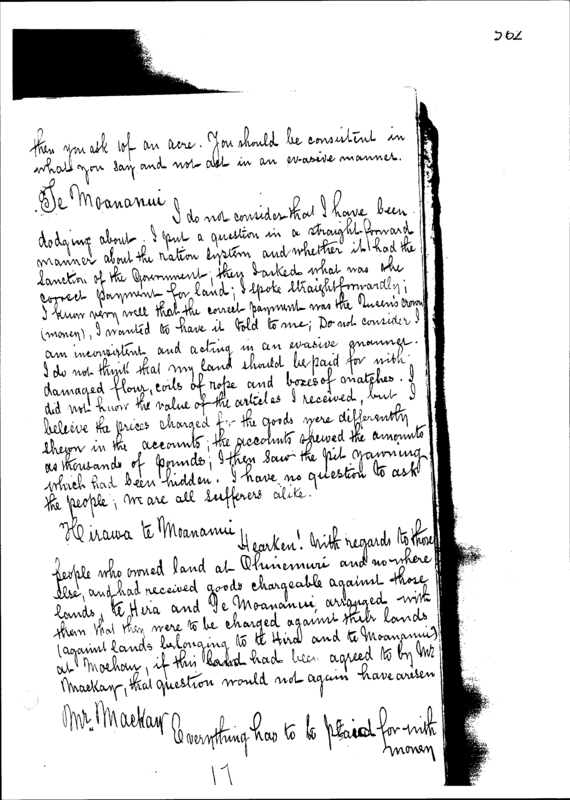 562
then you ask 1of an acre. You should be consistent in
what you say and not act in an evasive manner.
Te Moananui
I do not consider that I have been
dodging about. I put a question in a straight forward
manner about the ration system and whether it had the
Sanction of the Government; they I asked what was the
correct payment for land; I spoke straightforwardly;
I know very well that the correct payment was the Queen's Crown
(money), I wanted to have it told to me; Do not consider I
am inconsistent and acting in an evasive manner.
I do not think that my land should be paid for with
damaged flour, coils of rope and boxes of matches. I
did not know the value of the articles I received, but I
beleive the prices charged for the goods were differently
shewn in the accounts; the accounts shewed the amounts
as thousands of pounds; I then saw the pit yawning
which had been hidden. I have no question to ask
the people; we are all sufferers alike.
Hirawa te Moananui
Hearken! With regards to those
people who owned land at Ohinemuri and no-where
else, and had received goods chargeable against those
lands, te Hira and Te Moananui, arranged with
them that they were to be charged against their lands
(against lands belonging to te Hira and te Moananui)
at Moehau, if this had been agreed to by Mr
Mackay, that question would not again have arisen
Mr. Mackay
Everything has to be paid for with
money
17